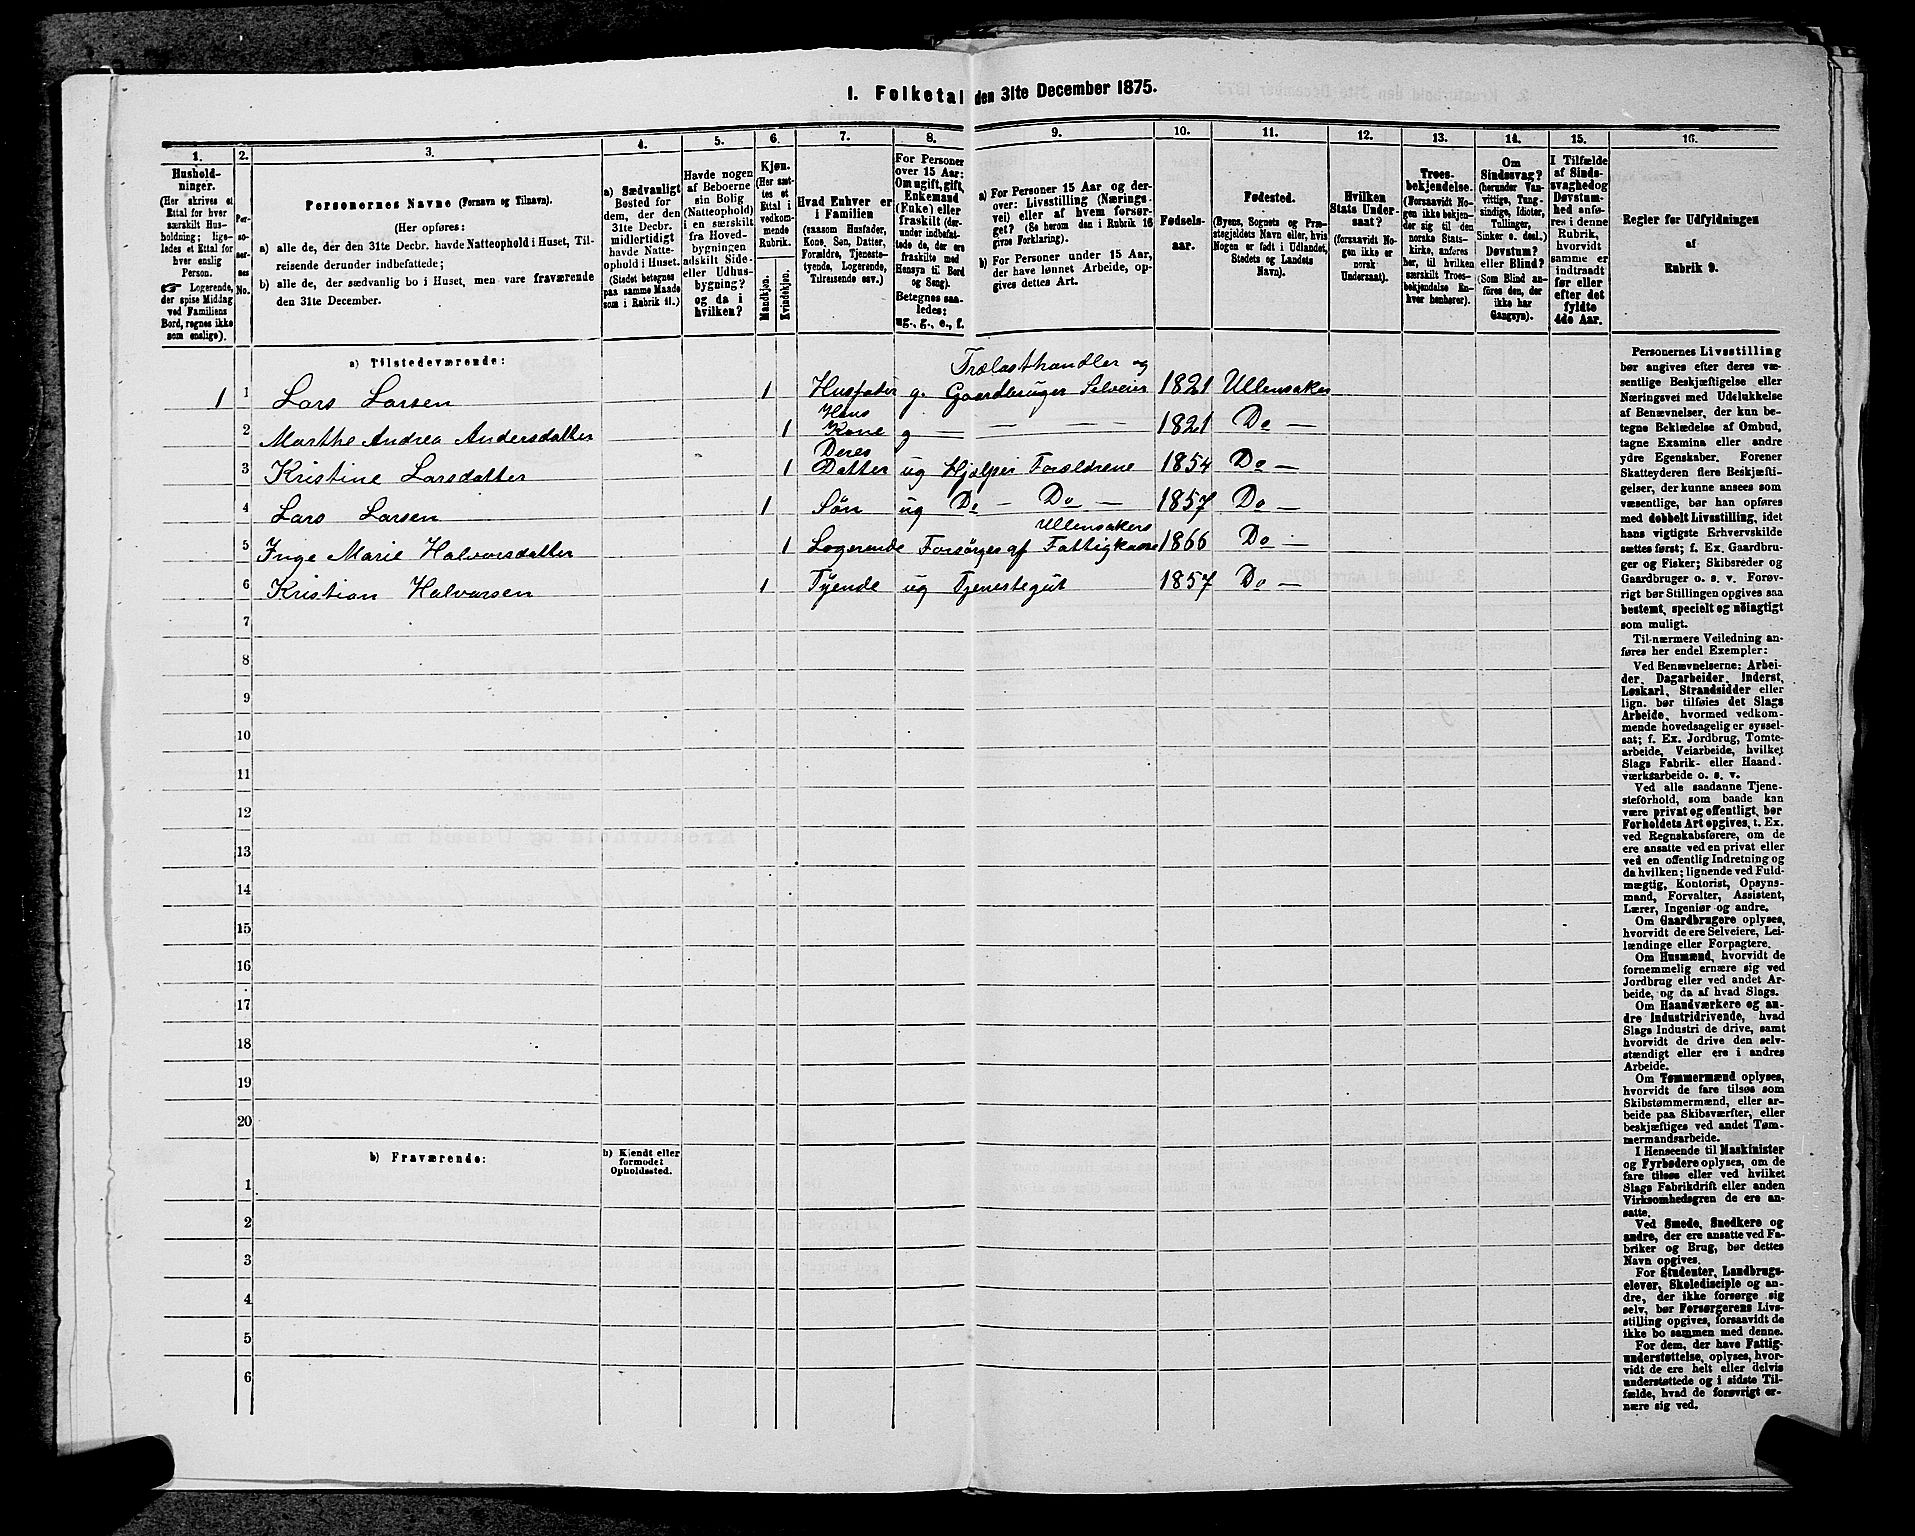 1. Folketal den 31te December 1875.
1.
2.
3.
4.
5.
6.
7.
8.
9.
10.
11.
12.
13.
14.
15.
16.
Hushold-
ninger.
(Her skrives et
Ettal for hver
særskilt Hus-
holdning; lige-
ledes et Ettal for
hver enslig
Person.
☛ Logerende,
der spise Middag
ved Familiens
Bord, regnes ikke
som enslige).
Per-
so-
nernes
No.
Personernes Navne (Fornavn og Tilnavn).
(Her opføres:
a) alle de, der den 31te Decbr. havde Natteophold i Huset, Til-
reisende derunder indbefattede;
b) alle de, der sædvanlig bo i Huset, men vare fraværende
den 31te December.
a) Sædvanligt
Bosted for
dem, der den
31te Decbr.
midlertidigt
havde Natte-
ophold i Huset.
(Stedet betegnes
paa samme Maade
som i Rubrik 11.)
Havde nogen
af Beboerne
sin Bolig
(Natteophold)
i en særskilt
fra Hoved-
bygningen
adskilt Side-
eller Udhus-
bygning?
og da i
hvilken?
Kjøn.
(Her sæt-
tes et
Ettal i
vedkom-
mende
Rubrik.
Mandkjøn.
Kvindekjøn.
Hvad Enhver er
i Familien
(saasom Husfader,
Kone, Søn, Datter,
Forældre, Tjeneste-
tyende, Logerende,
Tilreisende osv.)
For Personer
over 15 Aar:
Om ugift, gift,
Enkemand
(Enke) eller
fraskilt (der-
under indbefat-
tede de, der ere
fraskilte med
Hensyn til Bord
og Seng).
Betegnes saa-
ledes:
ug., g., e., f.
a) For Personer 15 Aar og der-
over: Livsstilling (Nærings-
vei) eller af hvem forsør-
get? (Se herom den i Rubrik 16
givne Forklaring).
b) For Personer under 15 Aar,
der have lønnet Arbeide, op-
gives dettes Art.
Fødsels-
aar.
Fødested.
(Byens, Sognets og Præ-
stegjeldets Navn eller, hvis
Nogen er født i Udlandet,
Stedets og Landets
Navn).
Hvilken
Stats Under-
saat?
(forsaavidt No-
gen ikke er
norsk
Undersaat).
Troes-
bekjendelse.
(Forsaavidt No-
gen ikke bekjen-
der sig til den
norske Stats-
kirke, anføres
her, til hvilken
særskilt Troes-
bekjendelse En-
hver henhører).
Om
Sindssvag?
(herunder Van-
vittige, Tung-
sindige, Idioter,
Tullinger,
Sinker o. desl.)
Døvstum?
eller Blind?
(Som Blind an-
føres den, der
ikke har
Gangsyn).
I Tilfælde
af Sinds-
svaghed og
Døvstum-
hed anfø-
res i denne
Rubrik,
hvorvidt
samme er
indtraadt
før eller
efter det
fyldte
4de Aar.
Regler for Udfyldningen
af
Rubrik 9.
a) Tilstedeværende:
Trælasthandler og
1 1 Lars Larsen 1 Husfader g. Gaardbruger Selveier 1821 Ullensaker
Hans
2 Marthe Andrea Andersdatter 1 Kone g — — — — 1821 Do —
Deres
3 Kristine Larsdatter 1 Datter ug Hjælper Forældrene 1854 Do —
4 Lars Larsen 1 Søn ug Do — Do — 1857 Do —
Ullensakers
5 Inge Marie Halvorsdatter 1 Logerende Forsørges af Fattigkasse 1866 Do —
6 Kristian Halvorsen 1 Tyende ug Tjenestegut 1857 Do —
7
8
9
10
11
12
13
14
15
16
17
18
19
20
b) Fraværende:
b) Kjendt eller
formodet
Opholdssted.
1
2
3
4
5
6
Personernes Livsstilling
bør angives efter deres væ-
sentlige Beskjæftigelse eller
Næringsvei med Udelukkelse
af Benævnelser, der kun be-
tegne Beklædelse af Ombud,
tagne Examina eller andre
ydre Egenskaber. Forener
Skatteyderen flere Beskjæfti-
gelser, der kunne ansees som
væsentlige, bør han opføres
med dobbelt Livsstilling, idet
hans vigtigste Erhvervskilde
sættes først; f. Ex. Gaardbru-
ger og Fisker; Skibsreder og
Gaardbruger o. s. v. Forøv-
rigt bør Stillingen opgives saa
bestemt, specielt og nöiagtigt
som muligt.
Til nærmere Veiledning an-
føres her endel Exempler:
Ved Benævnelserne: Arbei-
der, Dagarbeider, Inderst,
Løskarl, Strandsidder eller
lign. bør tilføies det Slags
Arbeide, hvormed vedkom-
mende hovedsagelig er syssel-
sat; f. Ex. Jordbrug, Tomte-
arbeide, Veiarbeide, hvilket
Slags Fabrik- eller Haand-
værksarbeide o. s. v.
Ved alle saadanne Tjene-
steforhold, som baade kan
være privat og offentligt, bør
Forholdets Art opgives, t. Ex.
ved Regnskabsførere, om de
ere ansatte ved en privat eller
ved en offentlig Indretning og
da hvilken; lignende ved Fuld-
mægtig, Kontorist, Opsyns-
mand, Forvalter, Assistent,
Lærer, Ingeniør og andre.
Om Gaardbrugere oplyses,
hvorvidt de ere Selveiere, Lei-
lændinge eller Forpagtere.
Om Husmænd, hvorvidt de
fornemmelig ernære sig ved
Jordbrug eller ved andet Ar-
beide, og da af hvad Slags.
Om Haandværkere og an-
dre Industridrivende, hvad
Slags Industri de drive, samt
hvorvidt de drive den selv-
stændigt eller ere i andres
Arbeide.
Om Tømmermænd oplyses,
hvorvidt de fare tilsøs som
Skibstømmermænd, eller ar-
beide paa Skibsværfter, eller
beskjæftiges ved andet Tøm-
mermandsarbeide.
I Henseende til Maskinister
og Fyrbødere oplyses, om de
fare tilsøs eller ved hvilket
Slags Fabrikdrift eller anden
Virksomhedsgren de ere an-
satte.
Ved Smede, Snedkere og
andre, der ere ansatte ved Fa-
briker og Brug, bør dettes
Navn opgives.
For Studenter, Landbrugs-
elever, Skoledisciple og an-
dre, der ikke forsørge sig
selv, bør Forsørgerens Livs-
stilling opgives, forsaavidt de
ikke bo sammen med denne.
For dem, der have Fattig-
understøttelse, oplyses, hvor-
vidt de ere helt eller delvis
understøttede og i sidste Til-
fælde, hvad de forøvrigt er-
nære sig ved.